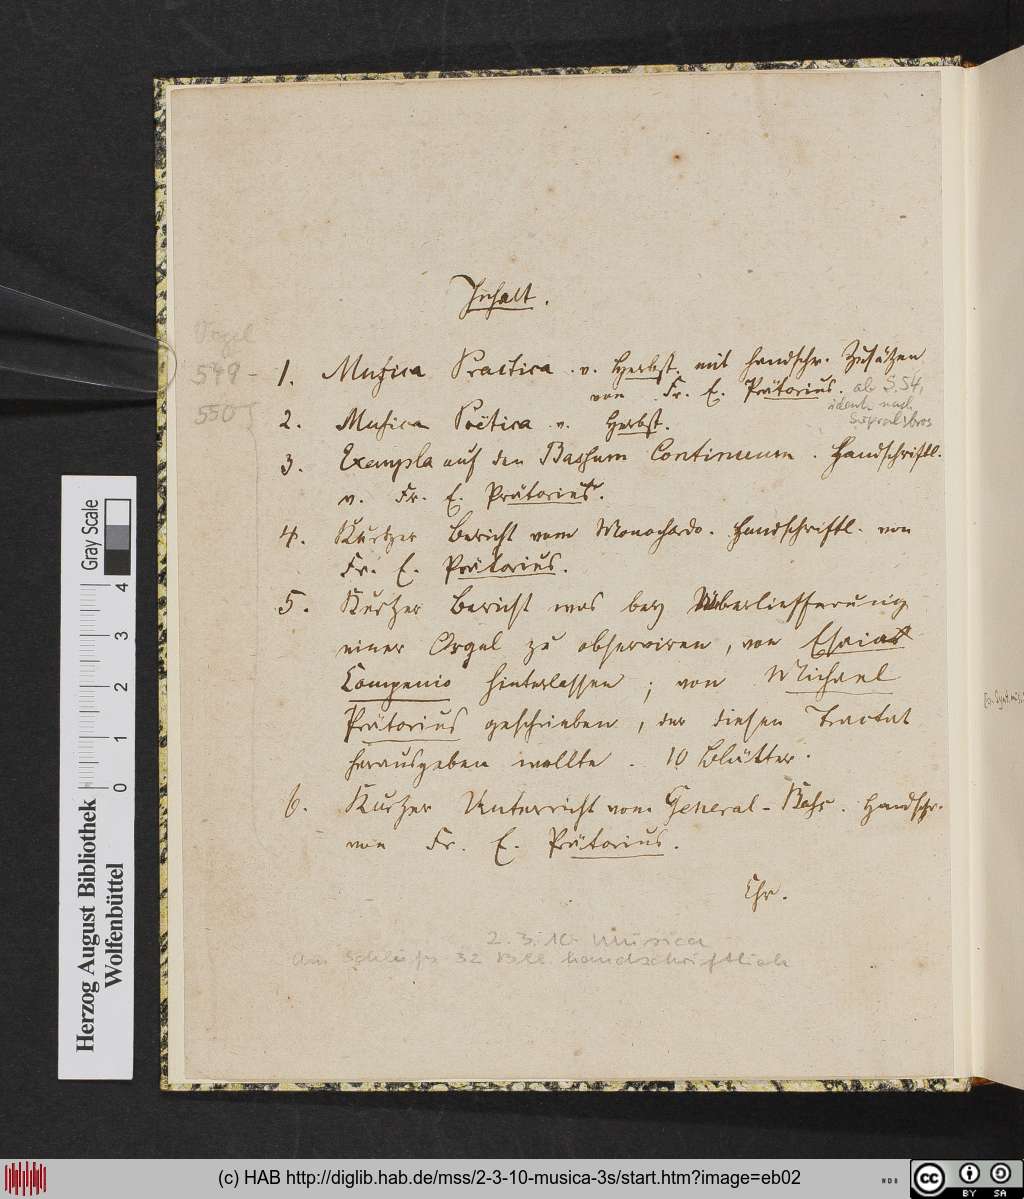 Inhalt.
Orgel
549 -
1. Musica Practica . v. Herbst. mit handschr. Zusätzen
von Fr. E. Prätorius. ab S. 54,
550
ident. nach
2. Musica Poëtica . v. Herbst.
3. Exempla auf den Bassum Continuum . Handschriftl.
v. Fr. E. Prätorius.
4. Kurtzer Bericht vom Monochordo. Handschriftl. von
Fr. E. Prätorius.
5. Kurtzer Bericht was bey Uberliefferung
einer Orgel zu observiren, von Esaias
Compenio hinterlassen ; von Michael
Prätorius geschrieben, der diesen Tractat
herausgeben wollte . 10 Blätter.
6. Kurtzer Unterricht vom General-Bass . Handschr.
von Fr. E. Prätorius.
Chr.
2. 3. 10 Musica
Am Schluss 32 Bll. handschriftlich
Herzog August Bibliothek
Wolfenbüttel
Gray Scale
0 1 2 3 4
(c) HAB http://diglib.hab.de/mss/2-3-10-musica-3s/start.htm?image=eb02
cc BY SA